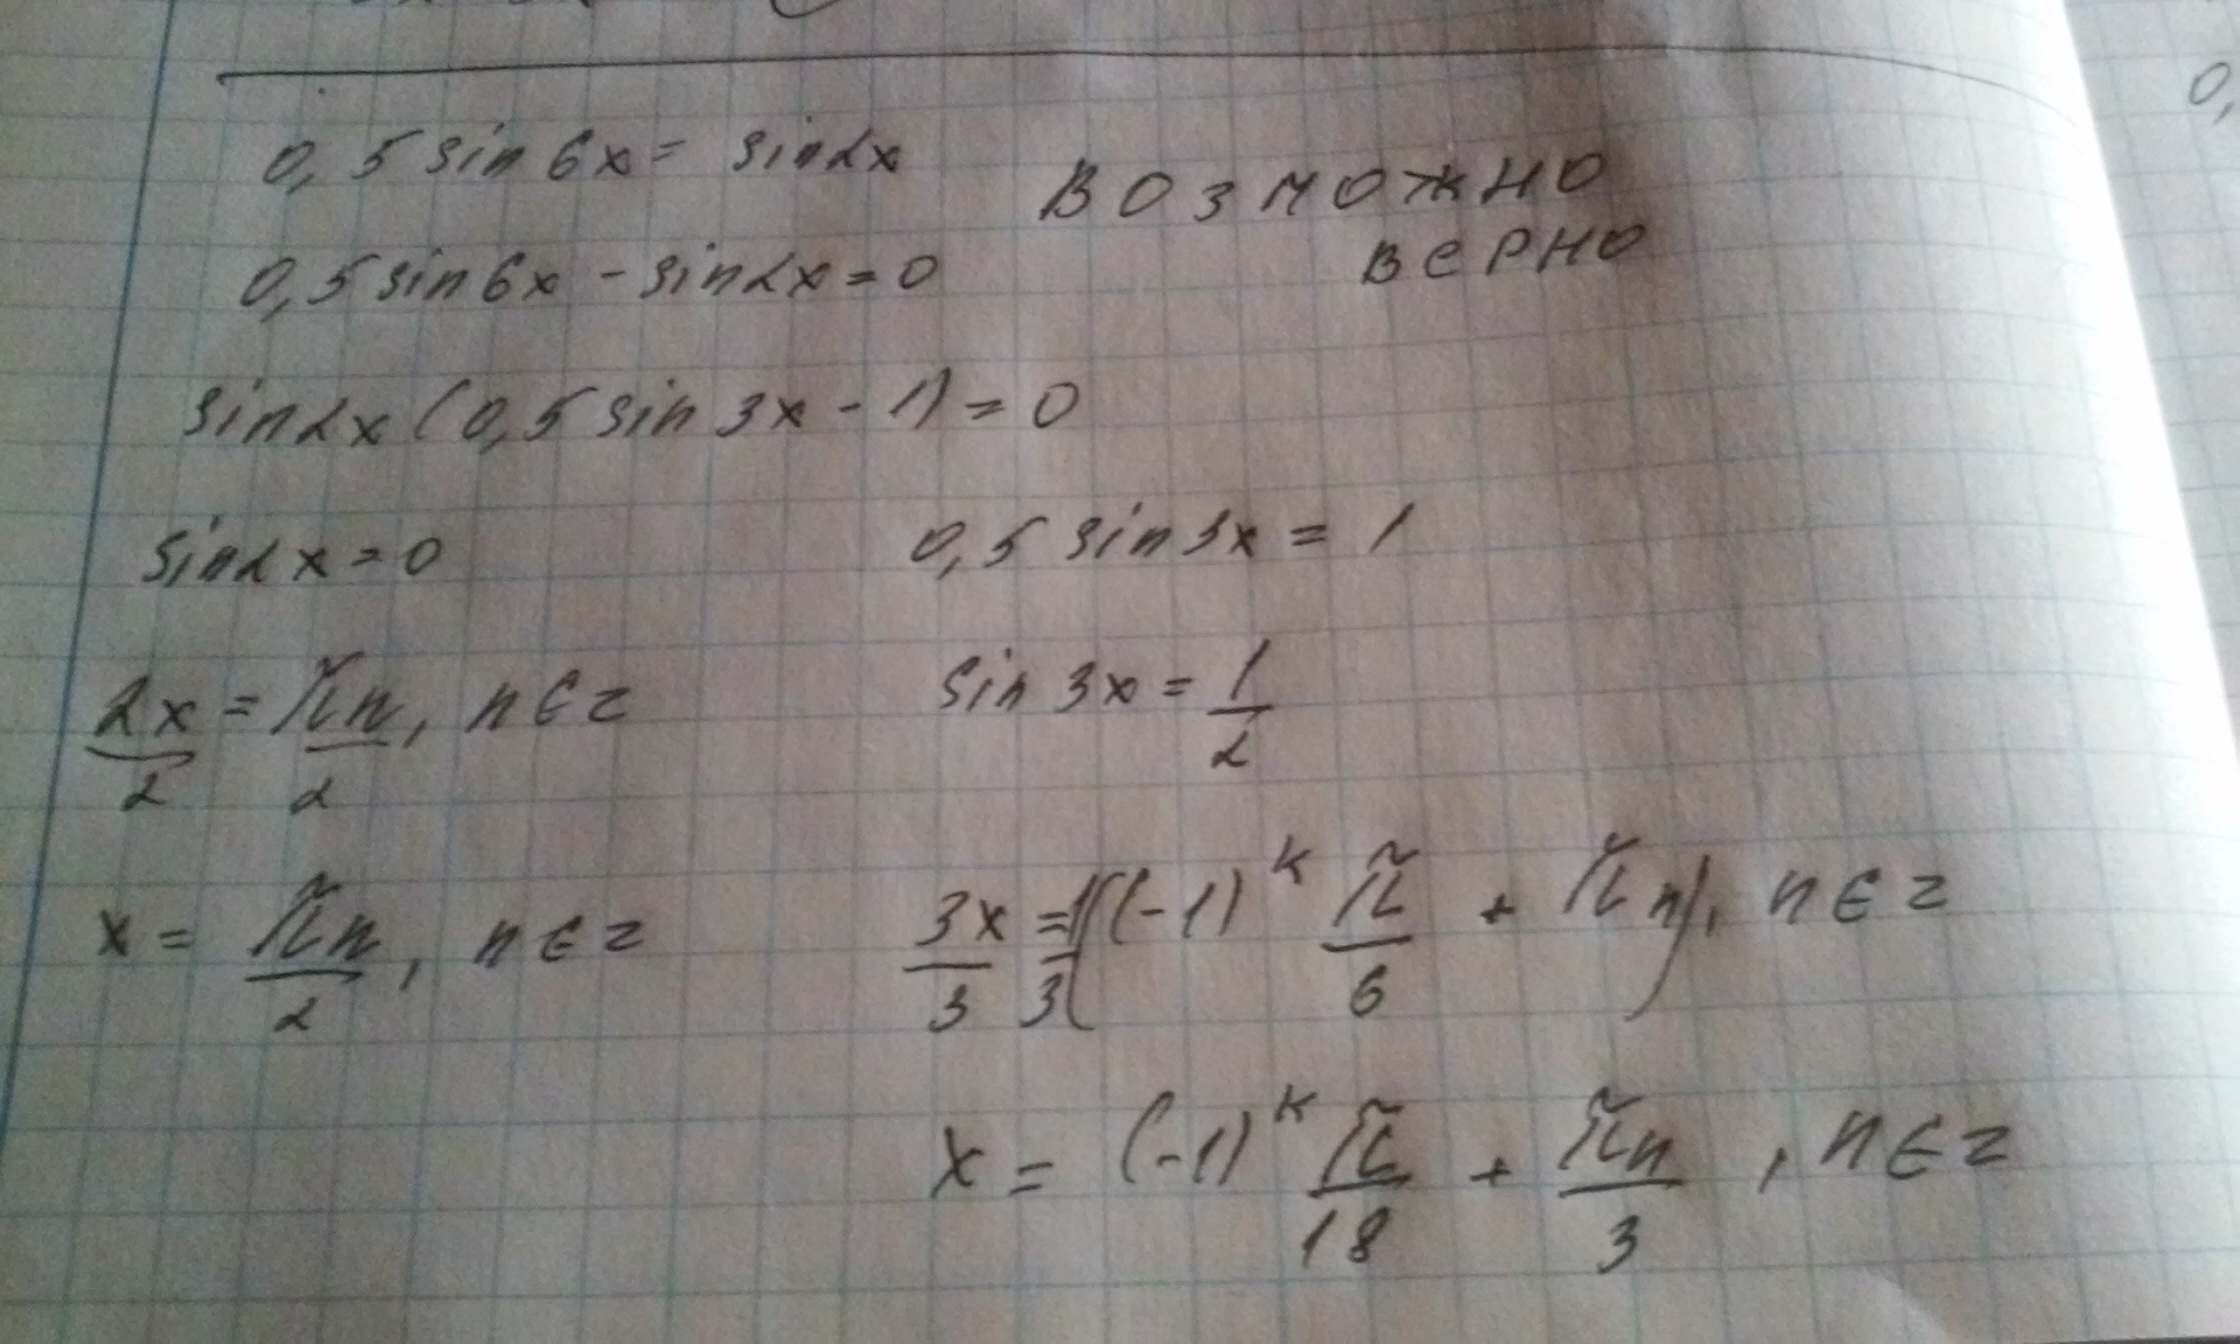 0,5 sin 6x = sin 2x
ВОЗМОЖНО
ВЕРНО
0,5 sin 6x - sin 2x = 0
sin 2x (0,5 sin 3x - 1) = 0
sin 2x = 0
0,5 sin 3x = 1
2x/2 = πn/2, n ∈ z
sin 3x = 1/2
x = πn/2, n ∈ z
3x/3 = 1/3((-1)^k π/6 + πn), n ∈ z
x = (-1)^k π/18 + πn/3, n ∈ z
0,